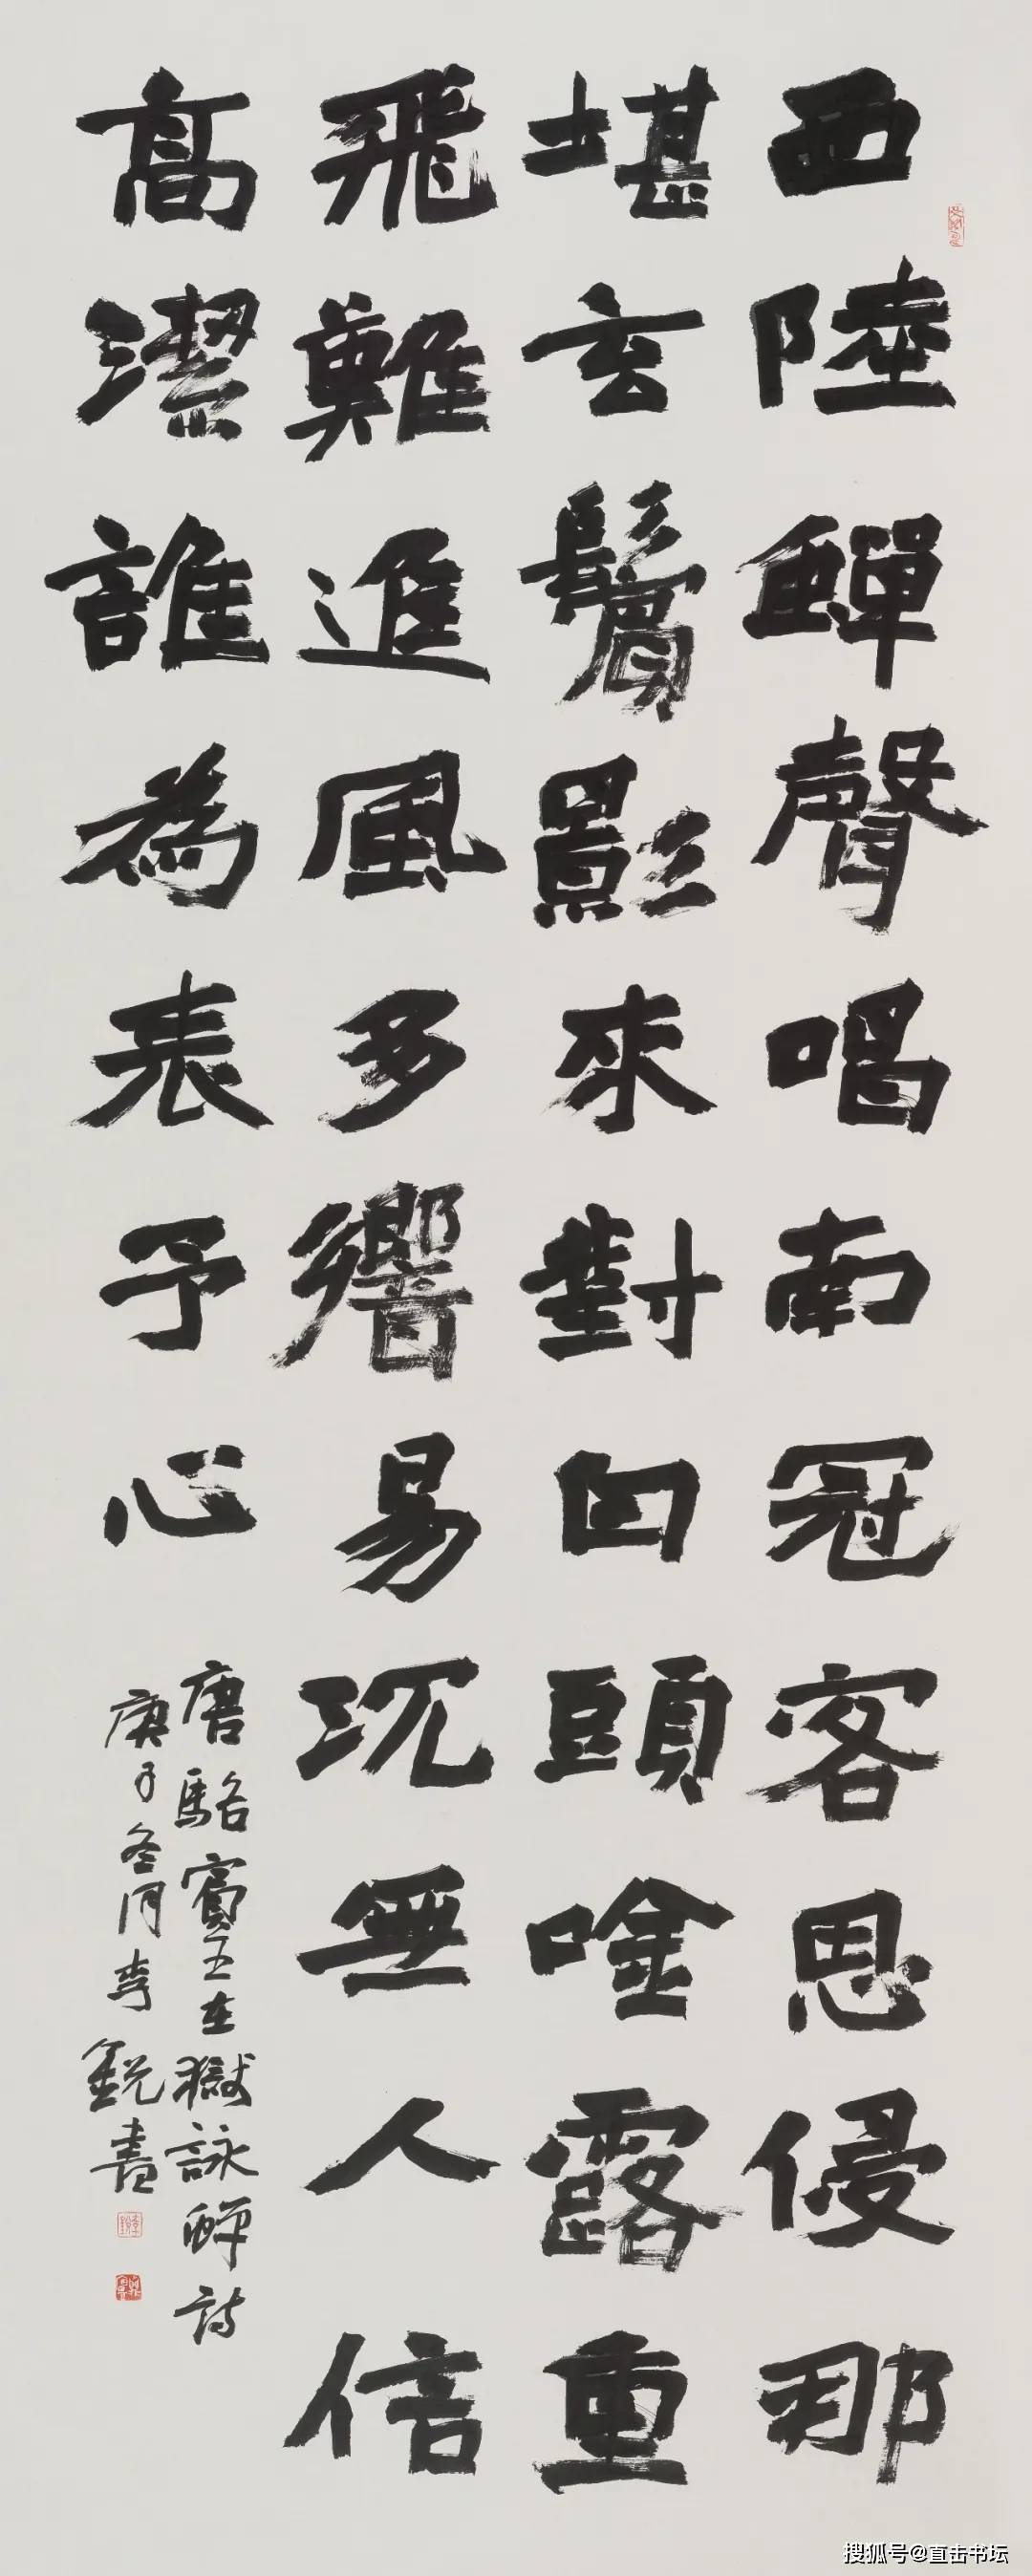 西陸蟬聲唱南冠客思侵那
堪玄鬢影來對白頭唫露重
飛難進風多響易沉無人信
高潔誰為表予心
唐駱賓王在獄詠蟬詩
庚子冬月李銳書
搜狐号@直击书坛